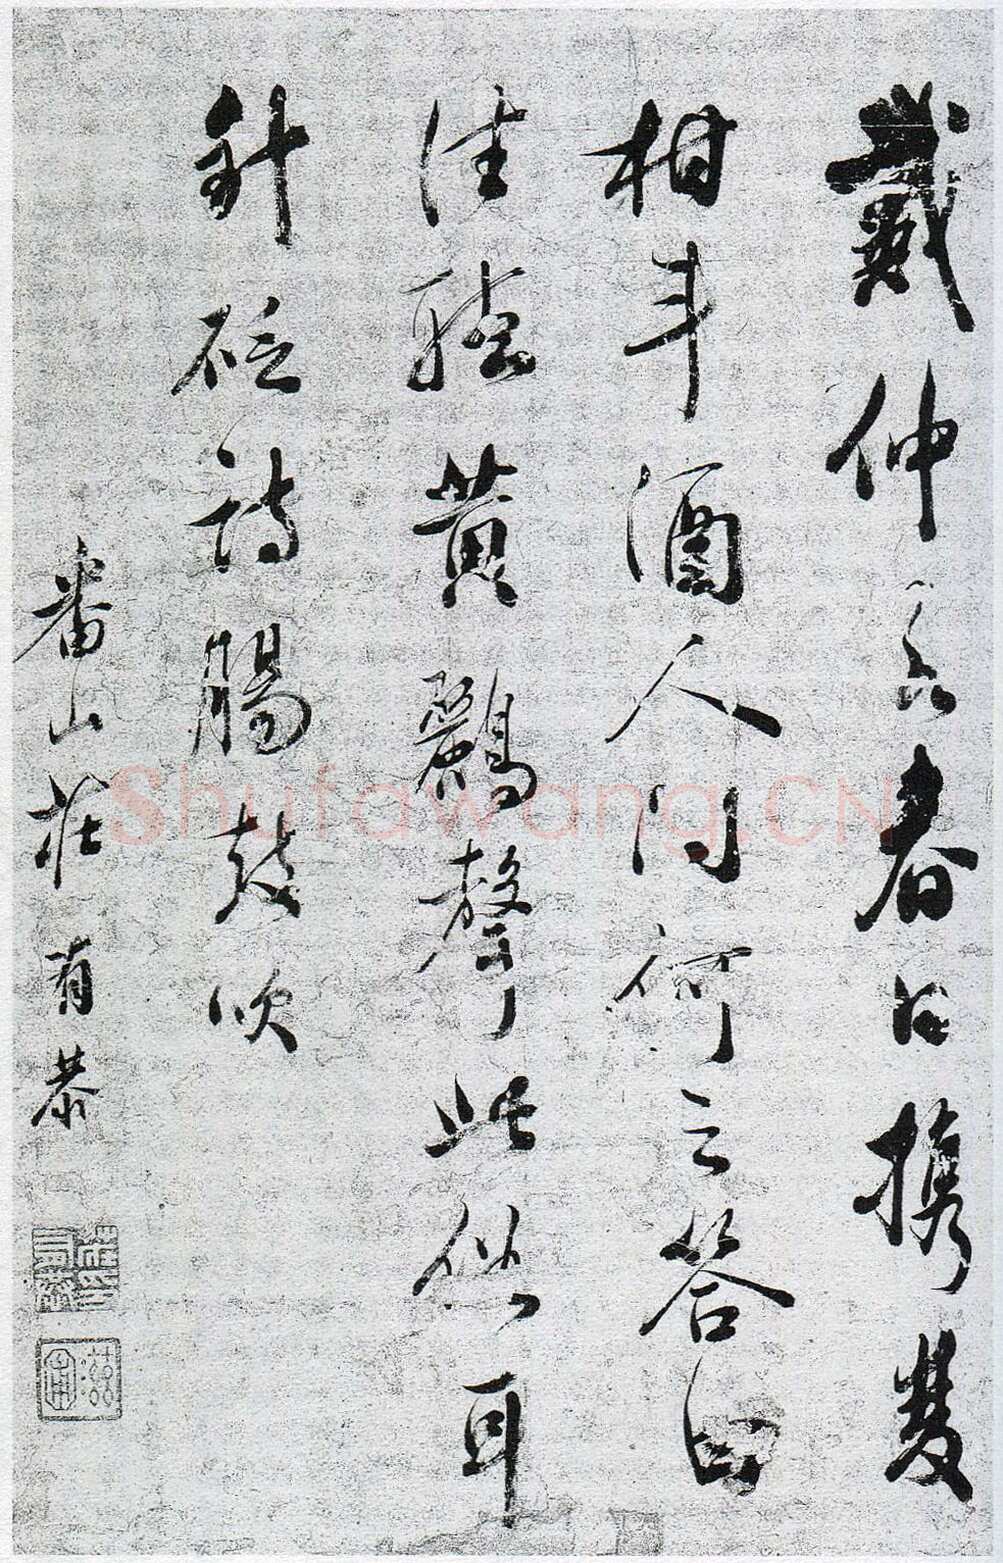 戴仲若春日携雙
柑斗酒人問何之答曰
往聽黃鸝聲此俗耳
針砭詩腸鼓吹
番山莊有恭
莊有恭印
滋圃
Shufawang.CN